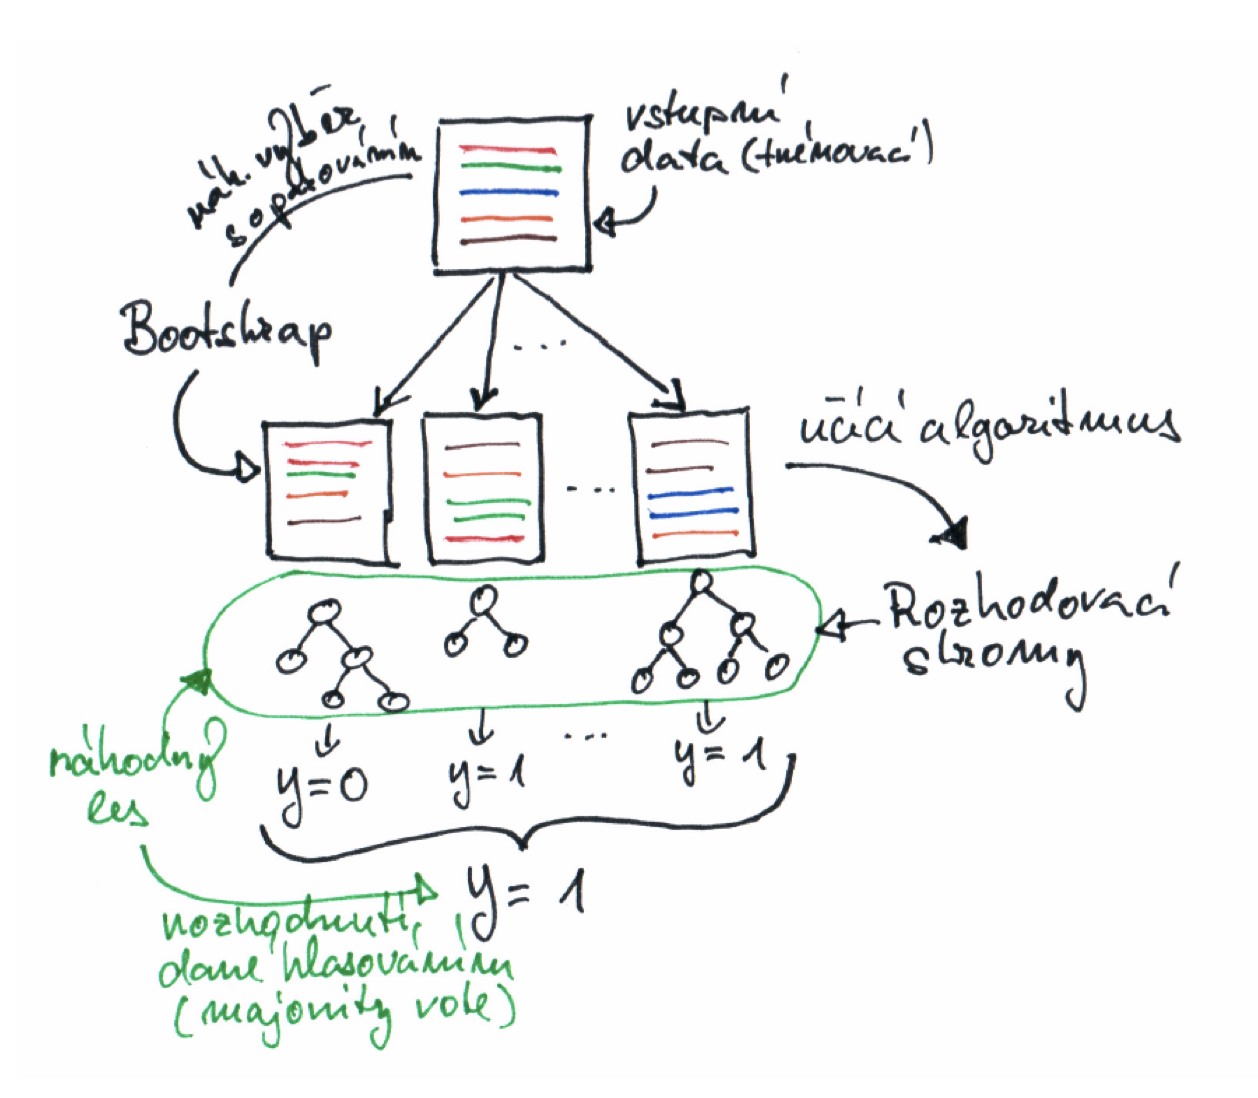 náh. výběr
s opakováním
vstupní
data (trénovací)
Bootstrap
...
...
učící algoritmus
Rozhodovací
stromy
náhodný
les
y=0
y=1
...
y=1
y=1
rozhodnutí
dané hlasováním
(majority vote)